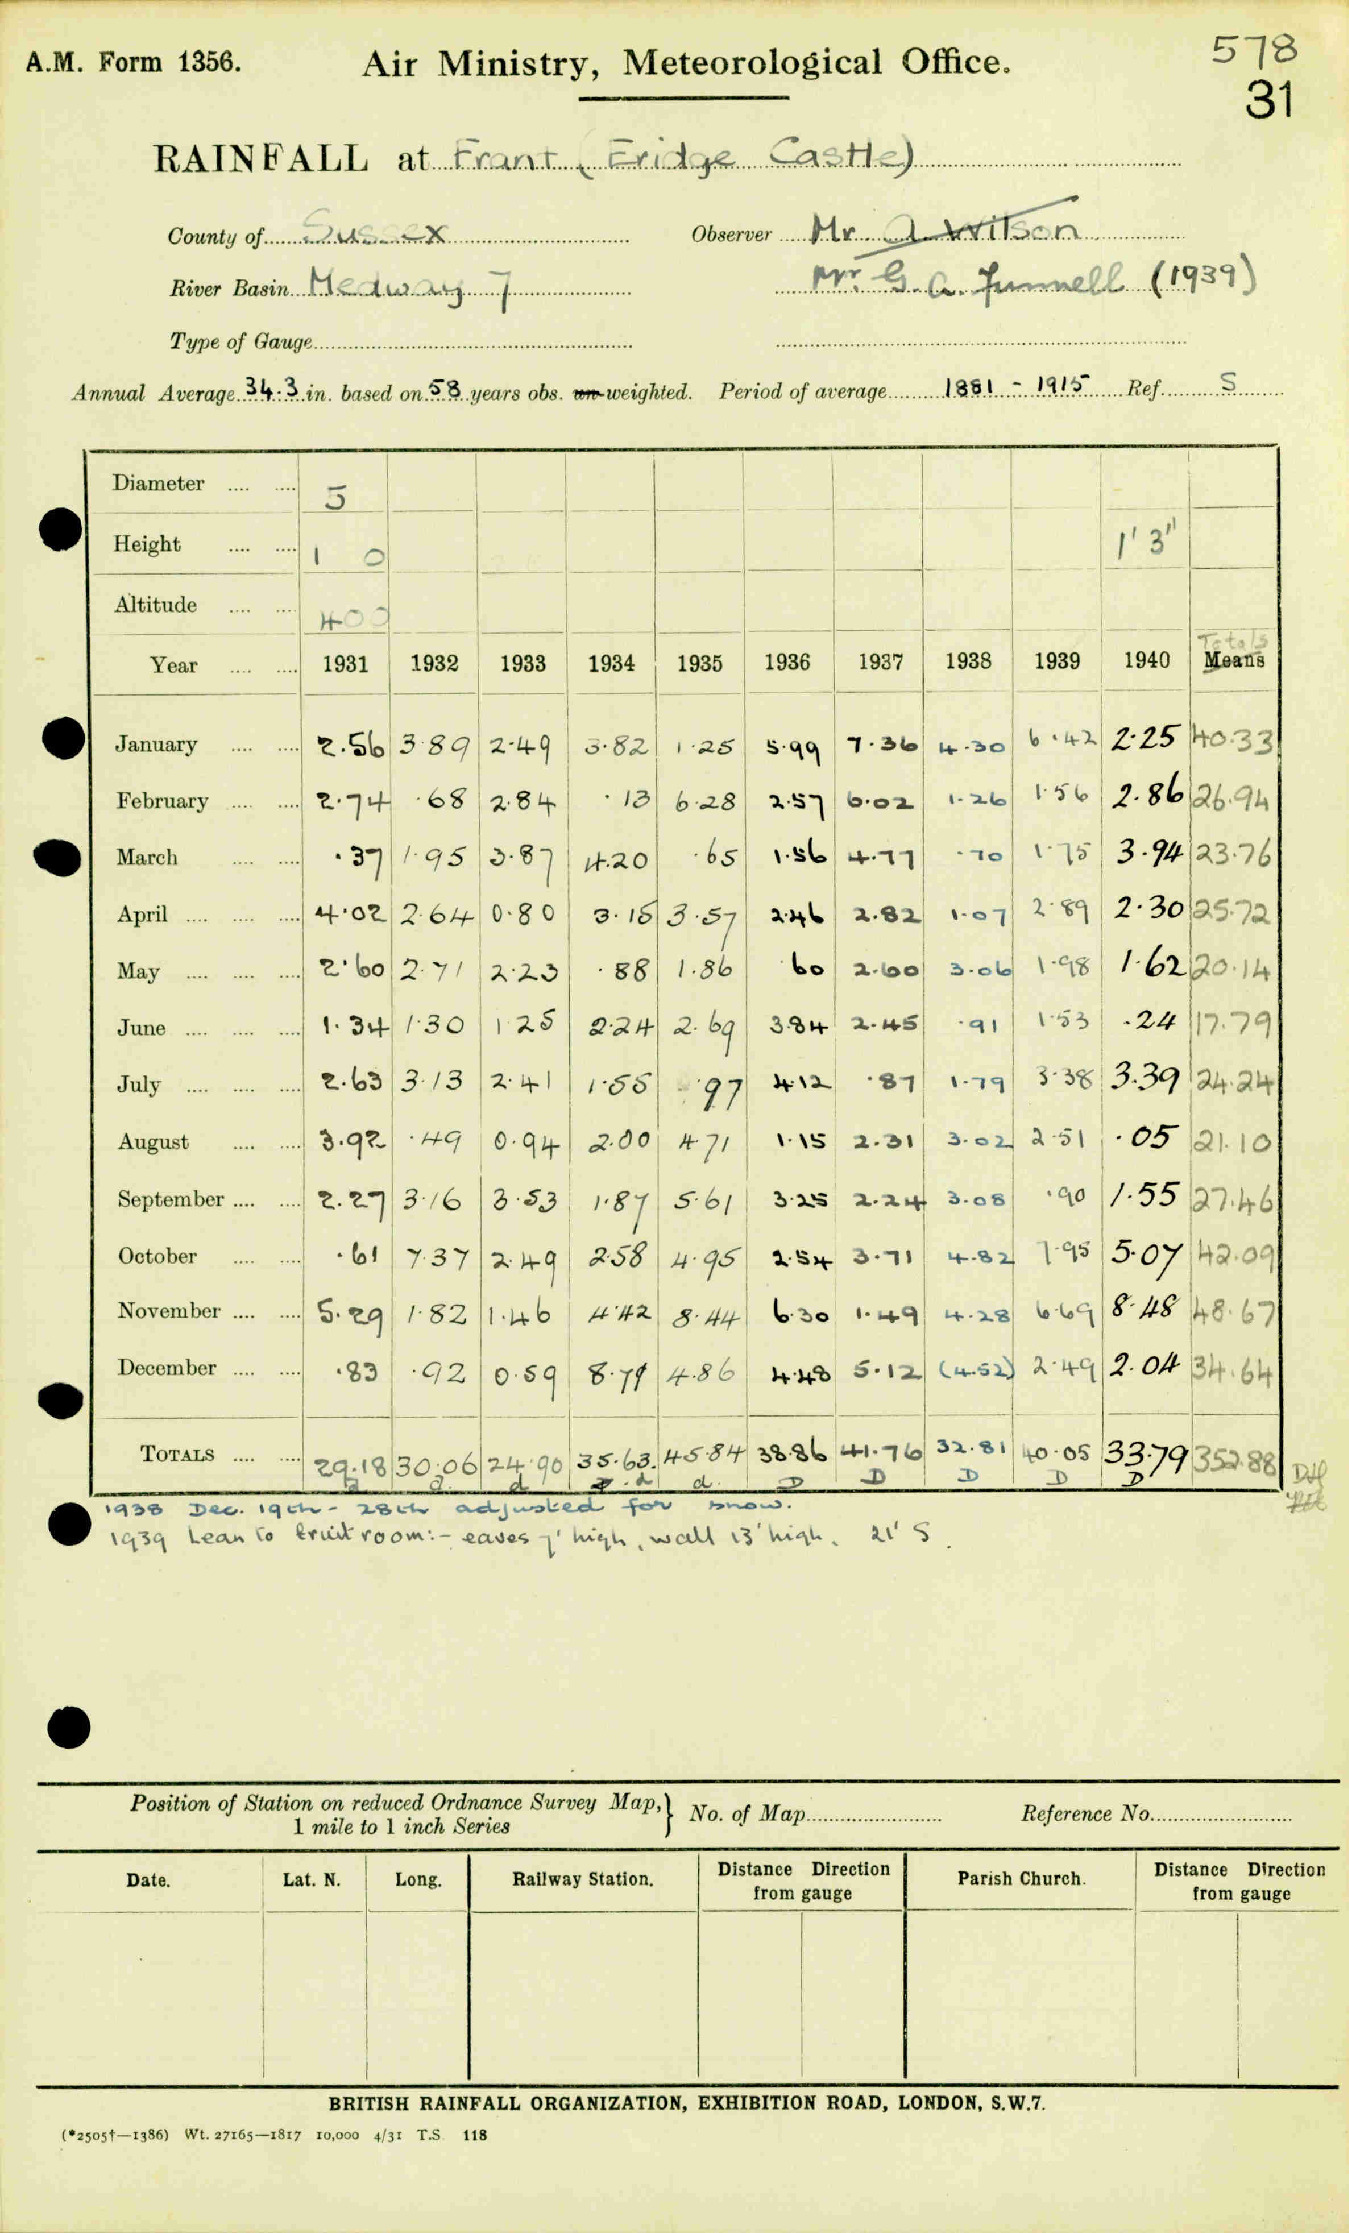 A.M. Form 1356.
Air Ministry, Meteorological Office.
578
31
RAINFALL at Frant (Eridge Castle)
County of Sussex Observer Mr. A. Wilson
River Basin Medway 7 Mr. G. A. Funnell (1939)
Type of Gauge
Annual Average 34.3 in. based on 58 years obs. un-weighted. Period of average 1881 - 1915 Ref. S
Diameter 5
Height 1 0 1' 3"
Altitude 400
Totals
Year 1931 1932 1933 1934 1935 1936 1937 1938 1939 1940 Means
January 2.56 3.89 2.49 3.82 1.25 5.99 7.36 4.30 6.42 2.25 40.33
February 2.74 .68 2.84 .13 6.28 2.57 6.02 1.26 1.56 2.86 26.94
March .37 1.95 3.87 4.20 .65 1.56 4.77 .70 1.75 3.94 23.76
April 4.02 2.64 0.80 3.15 3.57 2.46 2.82 1.07 2.89 2.30 25.72
May 2.60 2.71 2.23 .88 1.86 60 2.60 3.06 1.98 1.62 20.14
June 1.34 1.30 1.25 2.24 2.69 3.84 2.45 .91 1.53 .24 17.79
July 2.63 3.13 2.41 1.55 .97 4.12 .87 1.79 3.38 3.39 24.24
August 3.92 .49 0.94 2.00 4.71 1.15 2.31 3.02 2.51 .05 21.10
September 2.27 3.16 3.53 1.87 5.61 3.25 2.24 3.08 .90 1.55 27.46
October .61 7.37 2.49 2.58 4.95 2.54 3.71 4.82 7.95 5.07 42.09
November 5.29 1.82 1.46 4.42 8.44 6.30 1.49 4.28 6.69 8.48 48.67
December .83 .92 0.59 8.79 4.86 4.48 5.12 (4.52) 2.49 2.04 34.64
TOTALS 29.18 30.06 24.90 35.63 45.84 38.86 41.76 32.81 40.05 33.79 352.88
d d d d D D D D D
1938 Dec. 19th - 28th adjusted for snow.
1939 Lean to fruit room:- eaves 7' high, wall 13' high, 21' S.
Position of Station on reduced Ordnance Survey Map, 1 mile to 1 inch Series } No. of Map Reference No.
Date. Lat. N. Long. Railway Station. Distance Direction from gauge Parish Church. Distance Direction from gauge
BRITISH RAINFALL ORGANIZATION, EXHIBITION ROAD, LONDON, S.W.7.
(*2505†—1386) Wt. 27165—1817 10,000 4/31 T.S. 118